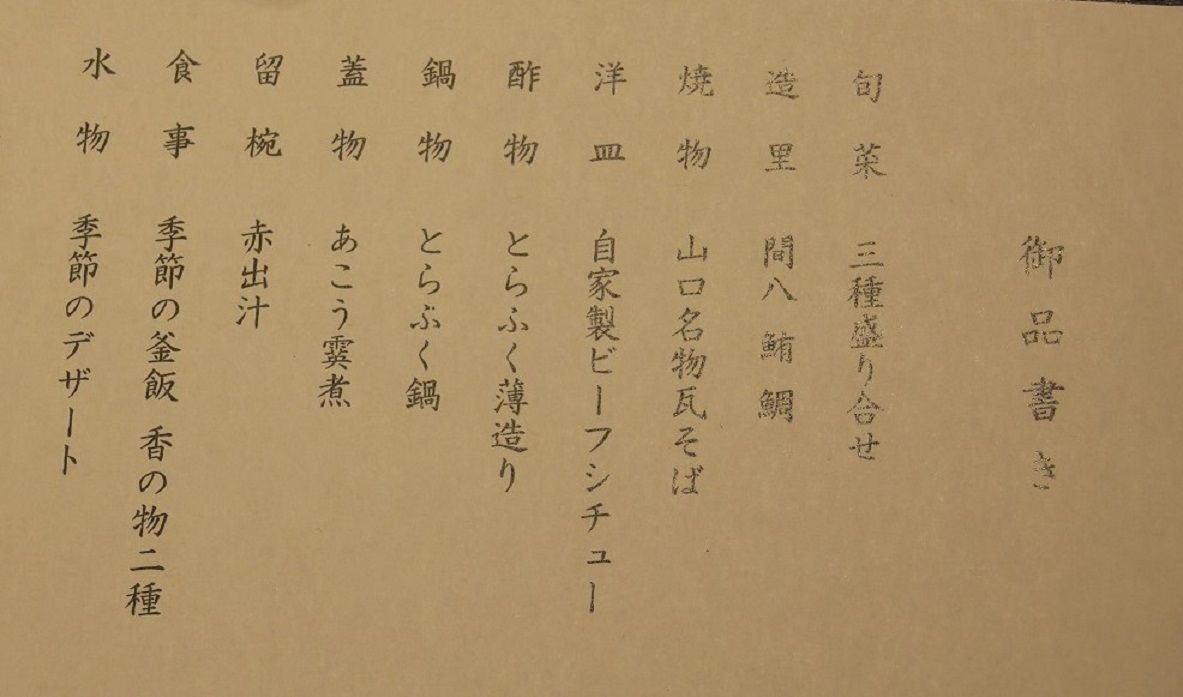 御品書き
旬菜 三種盛り合せ
造里 間八 鮪 鯛
焼物 山口名物瓦そば
洋皿 自家製ビーフシチュー
酢物 とらふく薄造り
鍋物 とらふく鍋
蓋物 あこう霙煮
留椀 赤出汁
食事 季節の釜飯 香の物二種
水物 季節のデザート